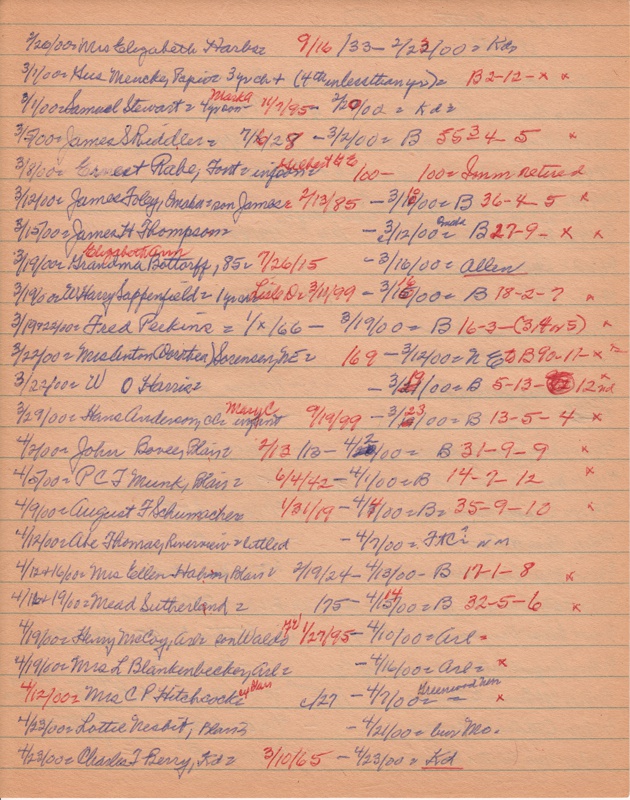 2/20/00= Mrs Elizabeth Harbs= 9/16/33 - 2/23/00= Kd=
3/1/00= Gus Mencke, Tapio= 3 yr ch + (4th in less than yr)= B 2-12-x x
3/1/00= Samuel Stewart= 4yr son Mark A 11/7/95- 2/20/00 = Kd=
3/5/00= James S Riddler= 7/6/28 - 3/2/00= B 55 3 4-5 x
3/8/00= Ernest Rabe, Font= infson= Hulbert H E 100- 100= Imm retired
3/12/00= James Foley, Omaha= son James= 2/13/85 - 3/10/00= B 36-4-5 x
3/15/00= James H Thompson= - 3/12/00= Omaha B 27-9-x x
3/19/00= Grandma Elizabeth Ann Bottorff, 85= 7/26/15 - 3/16/00= Allen
3/19/00= W Harry Sappenfield= 1 yr Lisle D= 3/11/99 - 3/16/00= B 18-2-7 x
3/19+22/00= Fred Perkins= 1/x/66 - 3/19/00= B 16-3-(3, 4 or 5) x
3/22/00= Mrs Anton (Dorthea) Sorensen, NE= 169 - 3/12/00= N E to B 90-11-x
3/22/00= W O Harris= - 3/19/00= B 5-13- 12 2nd x
3/29/00= Hans Anderson, infant Mary C 9/19/99 - 3/23/00= B 13-5-4 x
4/5/00= John Bovee, Blair= 2/13/13- 4/2/00= B 31-9-9 x
4/5/00= P C T Munk, Blair= 6/4/42 - 4/1/00= B 14-7-12 x
4/9/00= August F Schumacher 1/31/19 - 4/4/00= B= 35-9-10 x
4/12/00= Abe Thomas, Riverview= - 4/7/00= FtC=
4/12+16/00= Mrs Ellen Halsey, Blair= 2/19/24 - 4/13/00- B 17-1-8 x
4/16+19/00= Mead Sutherland= 175 - 4/14/00= B 32-5-6 x
4/19/00= Henry McCoy, Arl= son Waldo 1/27/95 - 4/10/00= Arl=
4/19/00= Mrs L Blankenbecker, Arl= - 4/16/00= Arl= x
4/12/00= Mrs C P Hitchcock= Blair c/27 - 4/7/00= Greenwood x
4/23/00= Lottie Nesbitt, Blair= - 4/21/00= bur Mo.
4/23/00= Charles T Berry, Kd= 3/10/65 - 4/23/00= Kd